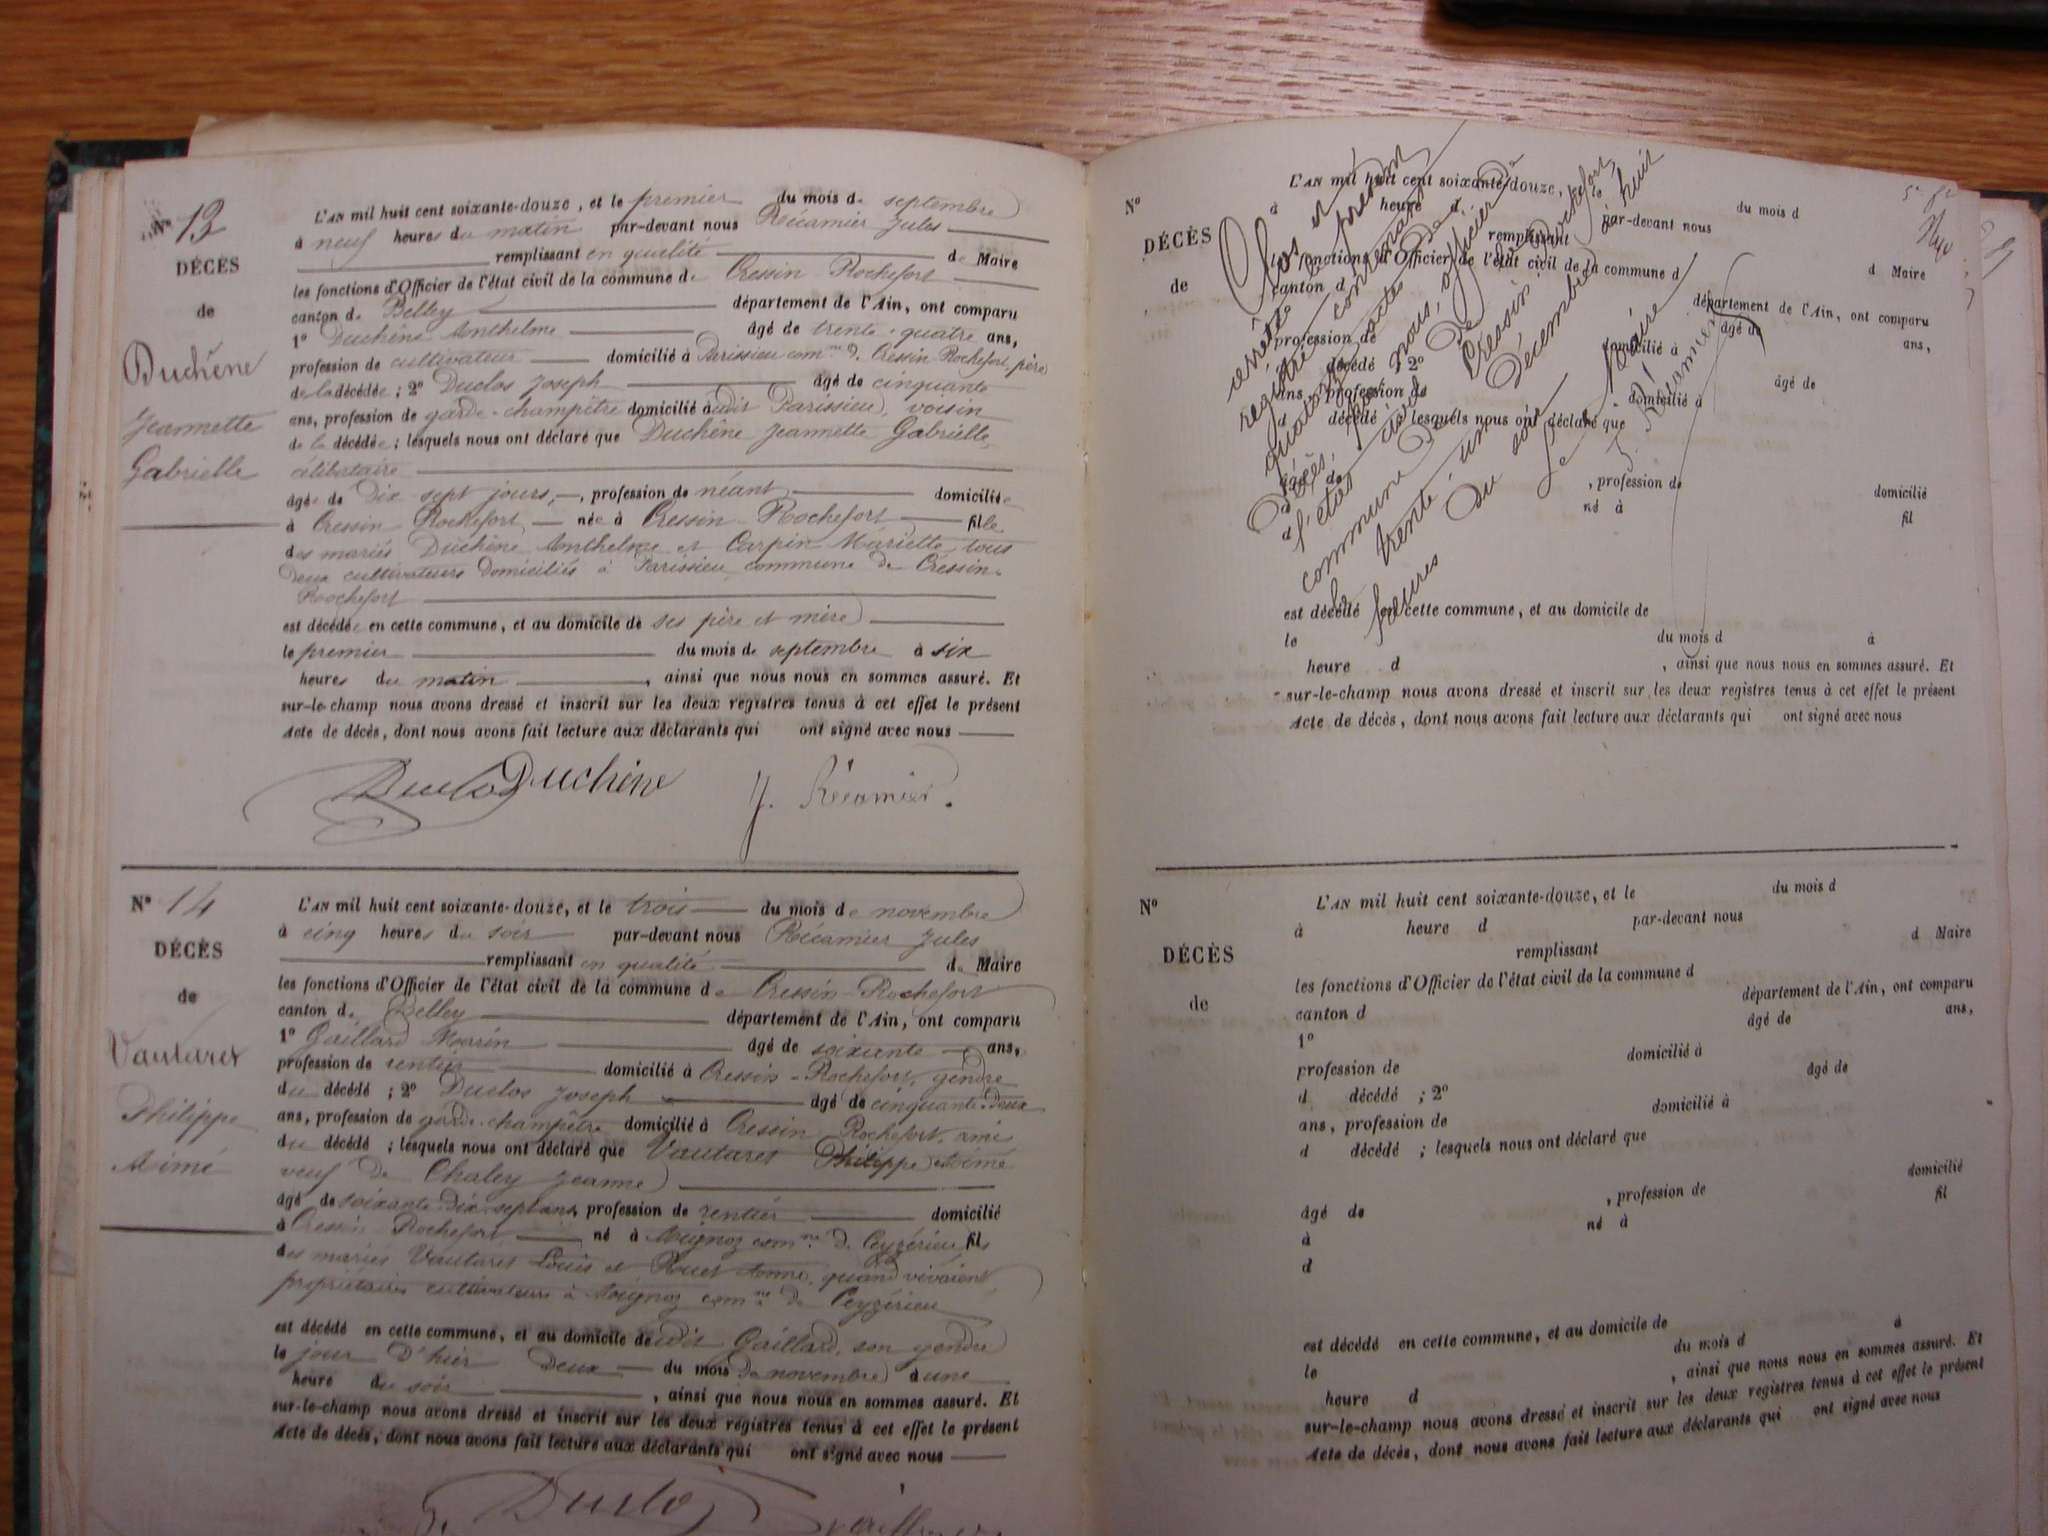 N° 13
DÉCÈS
de
Duchêne
Jeannette
Gabrielle
L'AN mil huit cent soixante-douze, et le premier du mois de septembre
à neuf heures du matin par-devant nous Récamier Jules
remplissant en qualité de Maire
les fonctions d'Officier de l'état civil de la commune de Cressin-Rochefort
canton de Belley département de l'Ain, ont comparu
1° Duchêne Anthelme âgé de trente-quatre ans,
profession de cultivateur domicilié à Parissieu comne de Cressin-Rochefort, père
de la décédée ; 2° Duclos Joseph âgé de cinquante
ans, profession de garde-champêtre domicilié à udit Parissieu, voisin
de la décédée ; lesquels nous ont déclaré que Duchêne Jeannette Gabrielle,
célibataire
âgée de Dix sept jours, profession de néant domiciliée
à Cressin Rochefort née à Cressin-Rochefort fille
des mariés Duchêne Anthelme et Carpin Mariette, tous
deux cultivateurs domiciliés à Parissieu, commune de Cressin-
Rochefort
est décédée en cette commune, et au domicile de ses père et mère
le premier du mois de septembre à six
heures du matin, ainsi que nous nous en sommes assuré. Et
sur-le-champ nous avons dressé et inscrit sur les deux registres tenus à cet effet le présent
Acte de décès, dont nous avons fait lecture aux déclarants qui ont signé avec nous
Duclos Duchêne J. Récamier.
N° 14
DÉCÈS
de
Vautaret
Philippe
Aimé
L'AN mil huit cent soixante-douze, et le trois du mois de novembre
à cinq heures du soir par-devant nous Récamier Jules
remplissant en qualité de Maire
les fonctions d'Officier de l'état civil de la commune de Cressin-Rochefort
canton de Belley département de l'Ain, ont comparu
1° Gaillard Marin âgé de soixante ans,
profession de rentier domicilié à Cressin-Rochefort, gendre
du décédé ; 2° Duclos Joseph âgé de cinquante-deux
ans, profession de garde-champêtre domicilié à Cressin Rochefort, ami
du décédé ; lesquels nous ont déclaré que Vautaret Philippe Aimé
veuf de Chaley Jeanne
âgé de soixante Dix sept ans, profession de rentier domicilié
à Cressin Rochefort né à Avignoz comne de Ceyzérieu fils
des mariés Vautaret Louis et Rouet Anne, quand vivaient
propriétaires cultivateurs à Avignoz comne de Ceyzérieu
est décédé en cette commune, et au domicile de udit Gaillard, son gendre
le jour D'hier Deux du mois de novembre à une
heure du soir, ainsi que nous nous en sommes assuré. Et
sur-le-champ nous avons dressé et inscrit sur les deux registres tenus à cet effet le présent
Acte de décès, dont nous avons fait lecture aux déclarants qui ont signé avec nous
Duclos
N°
DÉCÈS
de
L'AN mil huit cent soixante-douze, le du mois d
à heure d par-devant nous
remplissant d Maire
les fonctions d'Officier de l'état civil de la commune d
canton d département de l'Ain, ont comparu
âgé de ans,
profession de domicilié à
décédé ; 2° âgé de
ans, profession de domicilié à
d décédé ; lesquels nous ont déclaré que
âgé de , profession de domicilié
à né à fil
d
est décédé en cette commune, et au domicile de
le du mois d à
heure d , ainsi que nous nous en sommes assuré. Et
sur-le-champ nous avons dressé et inscrit sur les deux registres tenus à cet effet le présent
Acte de décès, dont nous avons fait lecture aux déclarants qui ont signé avec nous
Clos et
arrêté le présent
registre contenant
quatorze actes de
Décès, par nous, officier de
l'état civil de la
commune de Cressin Rochefort,
le trente-un décembre à huit
heures du soir
Le Maire
J. Récamier
N°
DÉCÈS
de
L'AN mil huit cent soixante-douze, et le du mois d
à heure d par-devant nous
remplissant d Maire
les fonctions d'Officier de l'état civil de la commune d
canton d département de l'Ain, ont comparu
1° âgé de ans,
profession de domicilié à
d décédé ; 2° âgé de
ans, profession de domicilié à
d décédé ; lesquels nous ont déclaré que
âgé de , profession de domicilié
à né à fil
d
est décédé en cette commune, et au domicile de
le du mois d à
heure d , ainsi que nous nous en sommes assuré. Et
sur-le-champ nous avons dressé et inscrit sur les deux registres tenus à cet effet le présent
Acte de décès, dont nous avons fait lecture aux déclarants qui ont signé avec nous